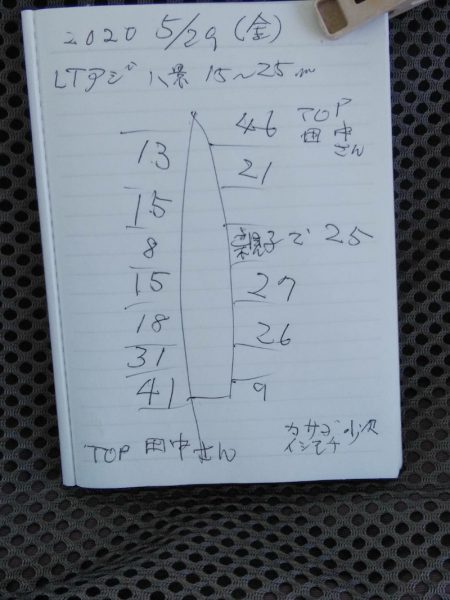 2020 5/29 (金)
LTアジ 八景 15~25m
46 TOP
田中
さん
13
21
15
8
親子で25
15
27
18
26
31
41
9
TOP 田中さん
カサゴ 少々
イシモチ